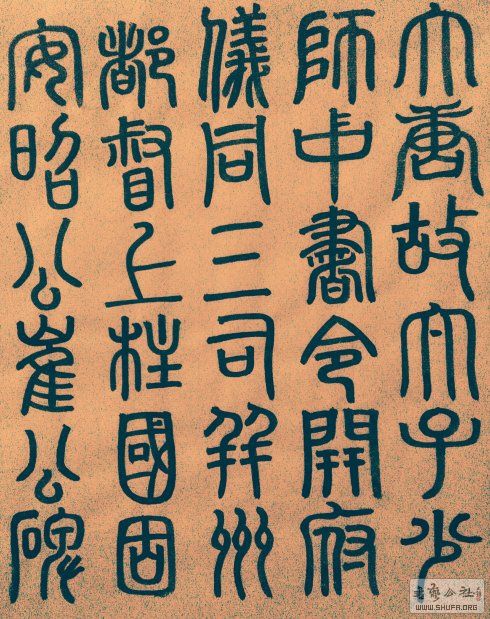 大唐故太子少
師中書令開府
儀同三司并州
都督上柱國固
安昭公崔公碑
WWW.SHUFA.ORG